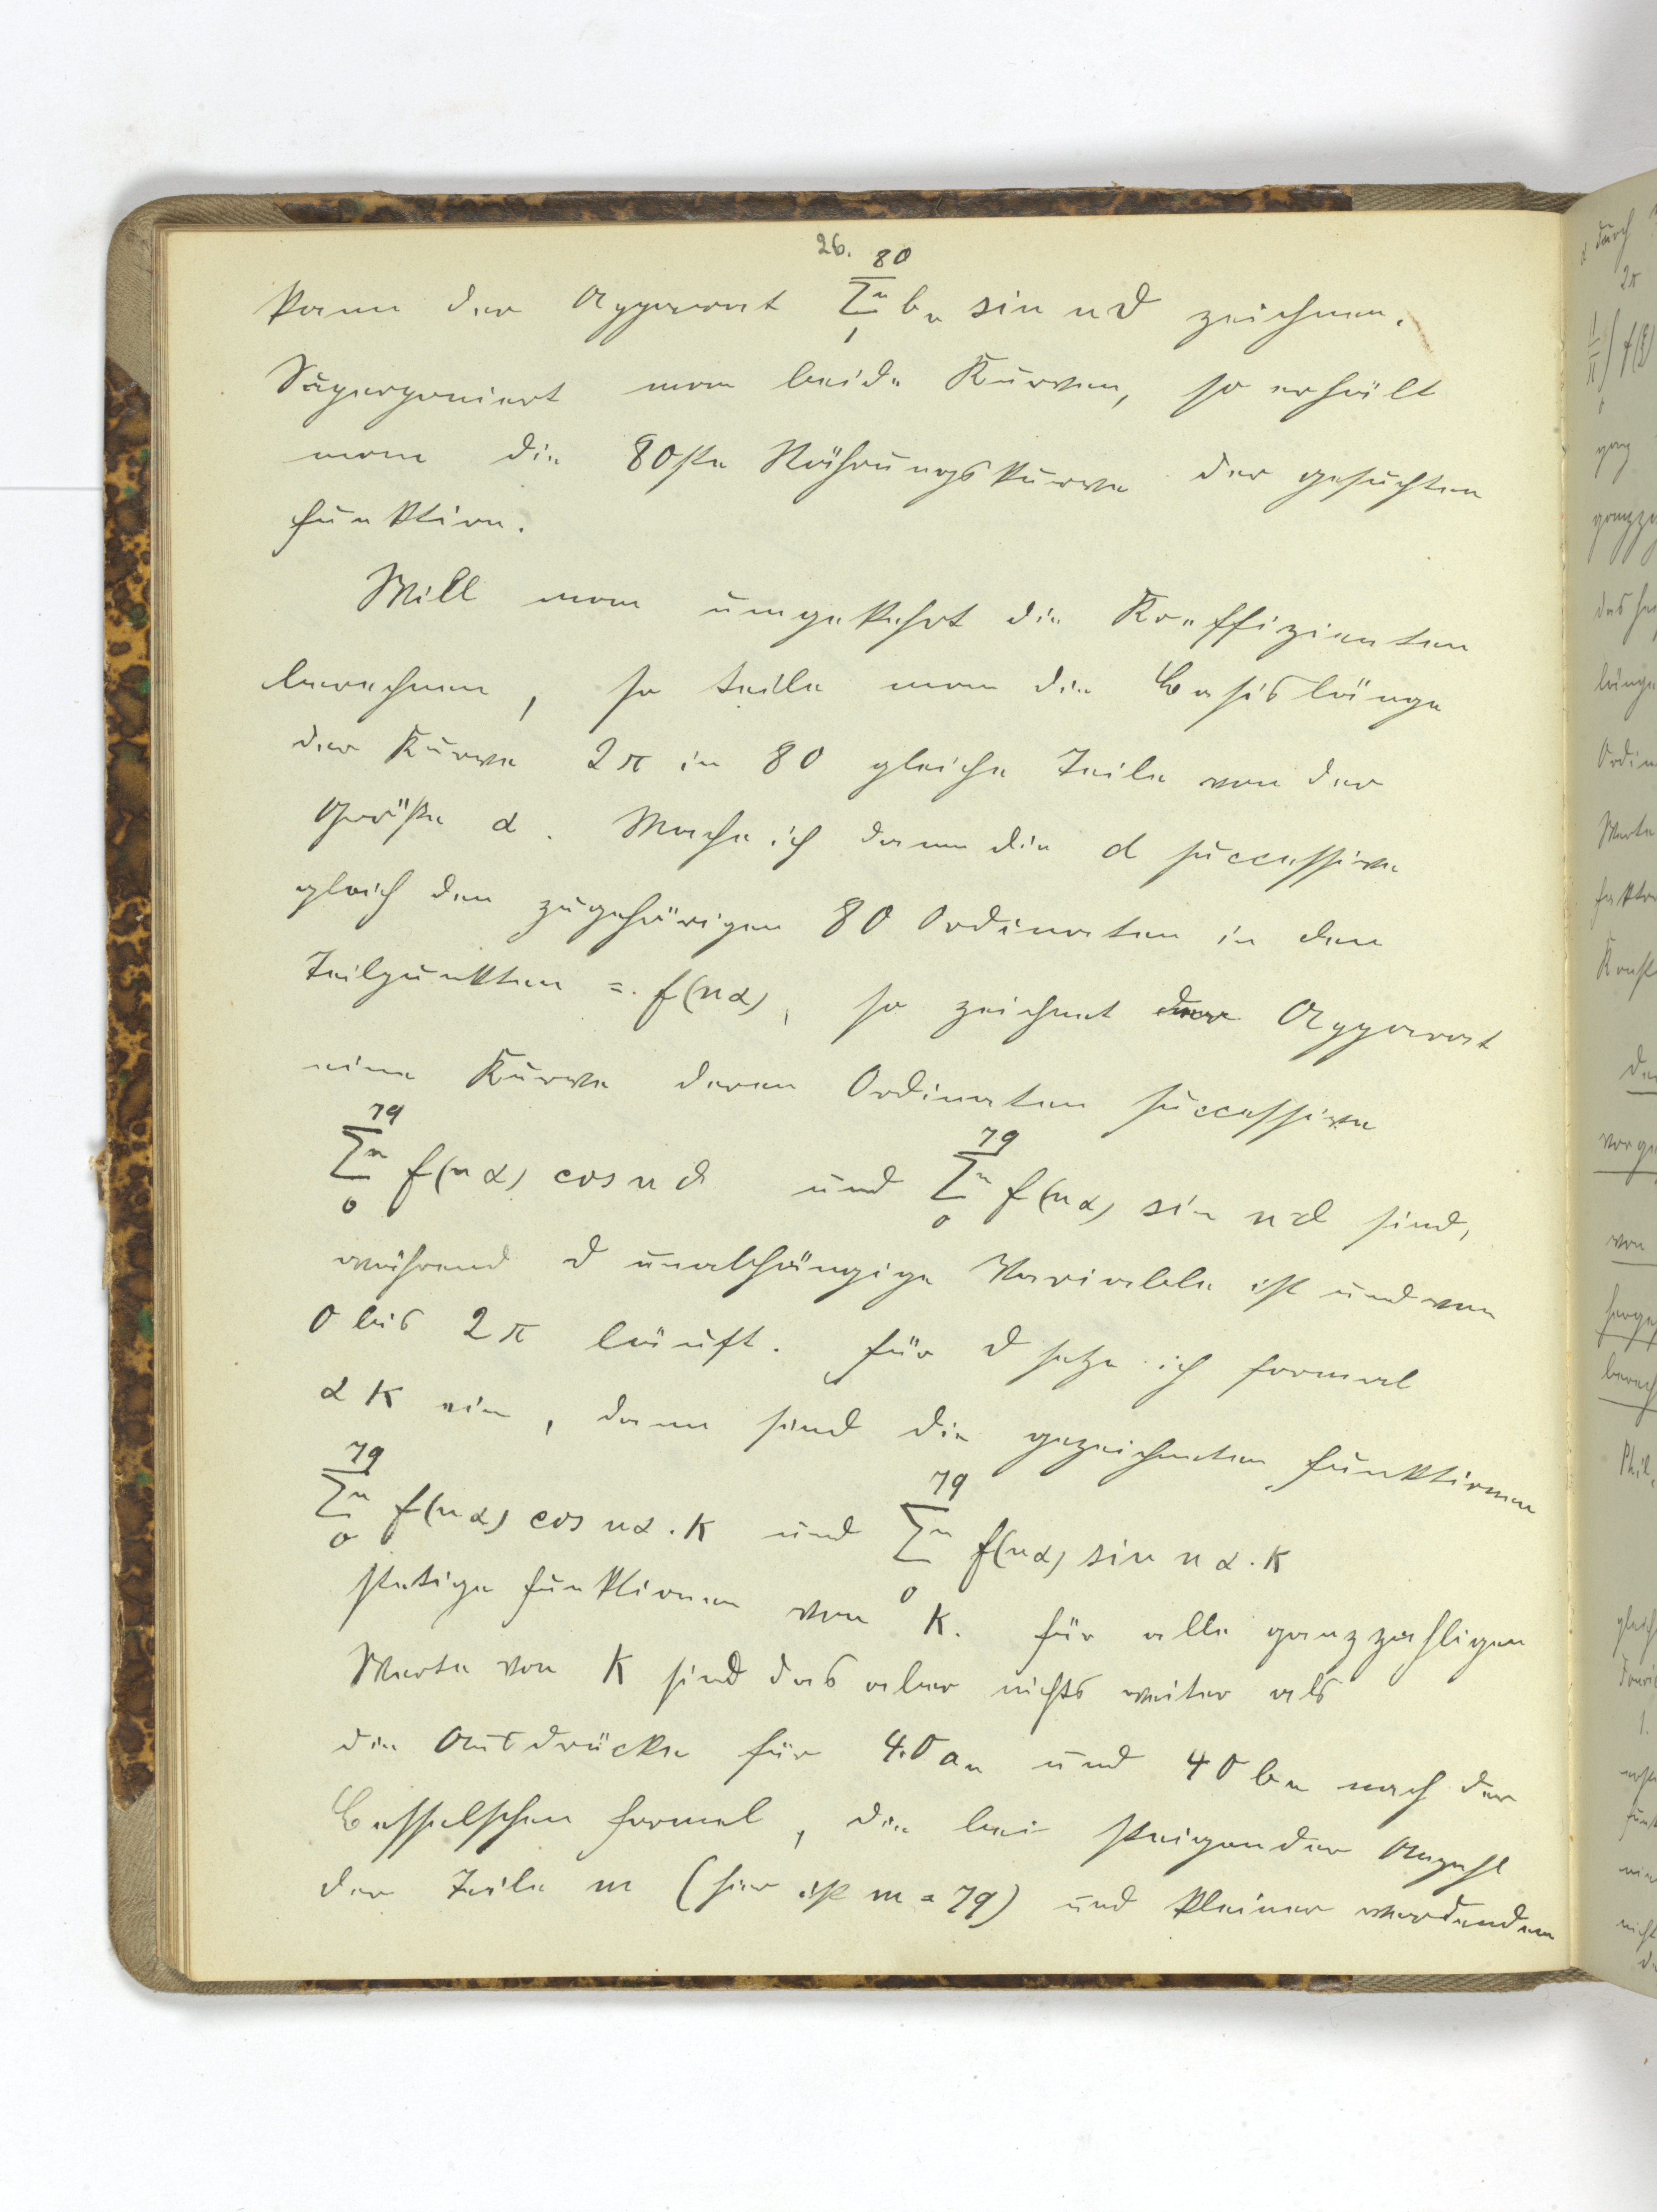 26.
kann der Apparat 80 Σⁿ 1 bₙ sin nϑ zeichnen.
Superponiert man beide Kurven, so erhält
man die 80ste Näherungskurve der gesuchten
Funktion.
Will man umgekehrt die Koeffizienten
berechnen, so teile man die Basislänge
der Kurve 2π in 80 gleiche Teile von der
Größe α. Mache ich dann die d successive
gleich den zugehörigen 80 Ordinaten in den
Teilpunkten = f(nα), so zeichnet der Apparat
eine Kurve deren Ordinaten successive
79 Σⁿ 0 f(nα) cos nϑ und 79 Σⁿ 0 f(nα) sin nϑ sind,
während ϑ unabhängige Variable ist und von
0 bis 2π läuft. Für ϑ setze ich formal
αK ein, dann sind die gezeichneten Funktionen
79 Σⁿ 0 f(nα) cos nα.K und 79 Σⁿ 0 f(nα) sin nα.K
stetige Funktionen von K. Für alle ganzzahligen
Werte von K sind das aber nichts weiter als
die Ausdrücke für 40aₙ und 40bₙ nach der
Besselschen Formel, die bei steigender Anzahl
der Teile m (hier ist m = 79) und kleiner werdendem
durch
2π
f(ξ)
π
0
ganzz
das
länge
Ordin
Werte
faktor
von
berech
Phil.
gleich
1.
nicht